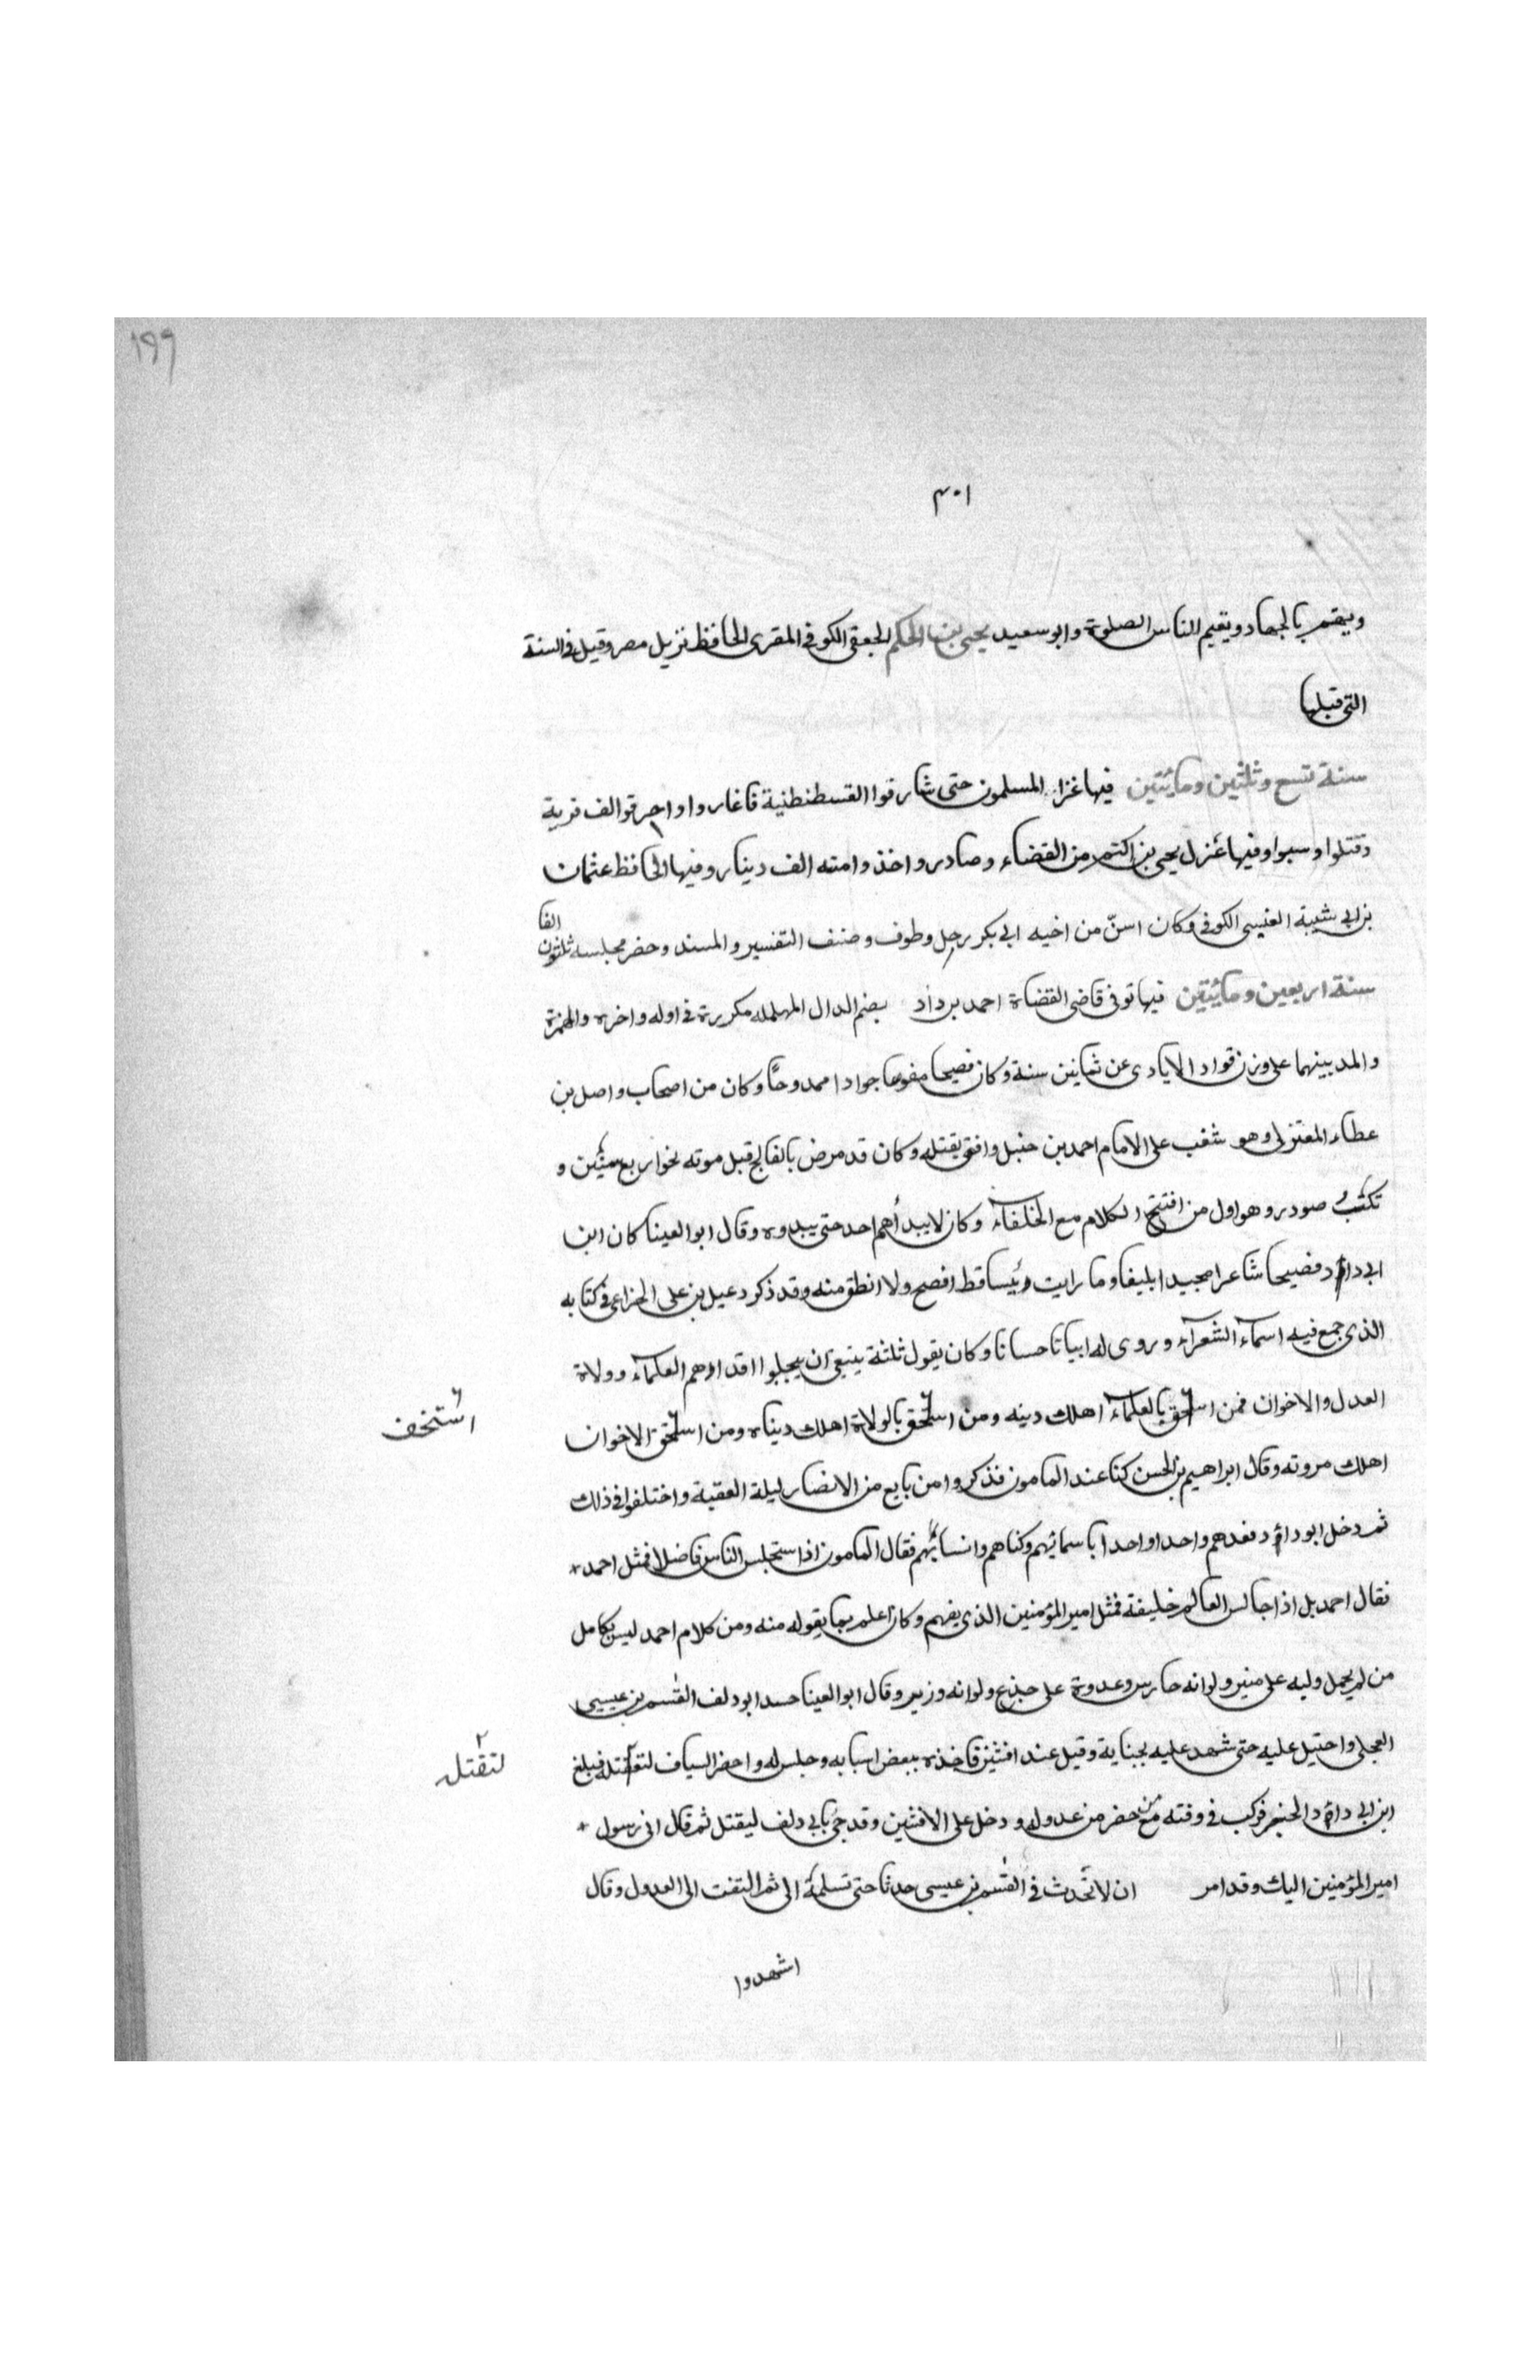 ١٩٩
٤٠١
ويقيم بالجهاد ويقيم الناس الصلوة وابو سعيد يحيى بن الحكم الجعفى الكوفى المقرى الحافظ نزيل مصر وقيل فى السنة
التى قبلها
سنة تسع وثلثين ومائيتين فيها غزا المسلمون حتى شارفوا القسطنطنية فاغاروا واحرقوا الف قرية
وقتلوا وسبوا وفيها عزل يحيى بن اكثم من القضاء وصادر واخذ وا منه الف دينار وفيها الحافظ عثمان
بن ابى شيبة العنبسى الكوفى وكان اسنّ من اخيه ابى بكر رحل وطوف وصنف التفسير والمسند وحضر مجلسه ثلثون الفا
سنة اربعين ومائيتين فيها توفى قاضى القضاة احمد بن دؤاد بضم الدال المهمله مكررة فى اوله واخره والهمزة
والمد بينهما على وزن قواد الايادى عن ثمانين سنة وكان فصيحا مفوها جوادا ممدوحًا وكان من اصحاب واصل بن
عطاء المعتزلى وهو شغب على الامام احمد بن حنبل وافتى بقتله وكان قد مرض بالفالج قبل موته نحو اربع سنين و
نكب و صودر وهو اول من افتتح الكلام مع الخلفاء وكان لا يبدأهم احد حتى يبدوه وقال ابو العينا كان ابن
ابى داؤد فصيحا شاعرا مجيدا بليغا وما رايت رئيسا قط افصح ولا انطق منه وقد ذكر دعبل بن على الخزاعى فى كتابه
الذى جمع فيه اسماء الشعراء وروى له ابياتا حسانا وكان يقول ثلثة ينبغى ان يبجلوا اقدارهم العلماء وولاة
العدل والاخوان فمن استخف بالعلماء اهلك دينه ومن استخف بالولاة اهلك دنياه ومن استخف الاخوان
استخف
اهلك مروته وقال ابراهيم بن الحسن كنا عند المامون فذكروا من بايع من الانصار ليلة العقبة واختلفوا فى ذلك
ثم دخل ابو داؤد فعدهم واحدا واحدا باسمائهم وكناهم وانسابهم فقال المامون اذا استجلس الناس فاضلا فمثل احمد
فقال احمد بل اذا جالس العالم خليفة فمثل امير المؤمنين الذى يفهم وكان اعلم بما يقوله منه ومن كلام احمد ليس بكامل
من لم يحمل وليه على منبر ولو انه حارس وعدوه على جذع ولو انه وزير وقال ابو العينا حسد ابو دلف القسم بن عيسى
العجلى واحتيل عليه حتى شهد عليه بجناية وقيل عند افشين فاخذه ببعض اسبابه وجلس له واحضر السياف لتقتله فبلغ
لتقتله
ابن ابى داؤد الخبر فركب فى وقته مع من حضر من عدوله ودخل على الافشين وقد جئ بابى دلف ليقتل ثم قال انى رسول
امير المؤمنين اليك وقد امر ان لا تحدث فى القسم بن عيسى حدثا حتى تسلمه الى ثم التفت الى العدول وقال
اشهدوا